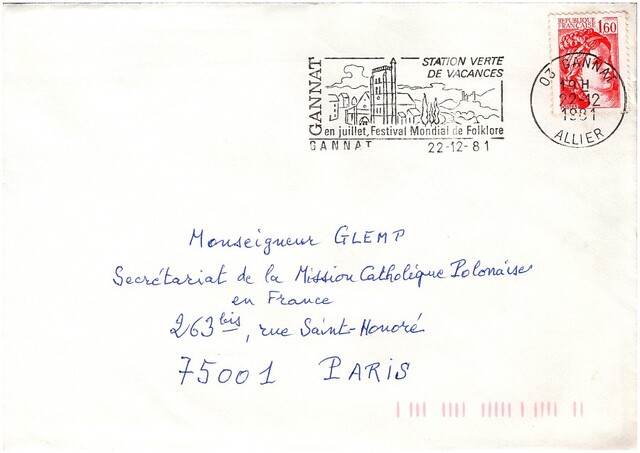 REPUBLIQUE
FRANÇAISE 1,60
GANNAT
STATION VERTE
DE VACANCES
en juillet, Festival Mondial de Folklore
GANNAT 22-12-81
03 GANNAT
19H
22-12
1981
ALLIER
Monseigneur GLEMP
Secrétariat de la Mission Catholique Polonaise
en France
263 bis, rue Saint-Honoré
75001 PARIS